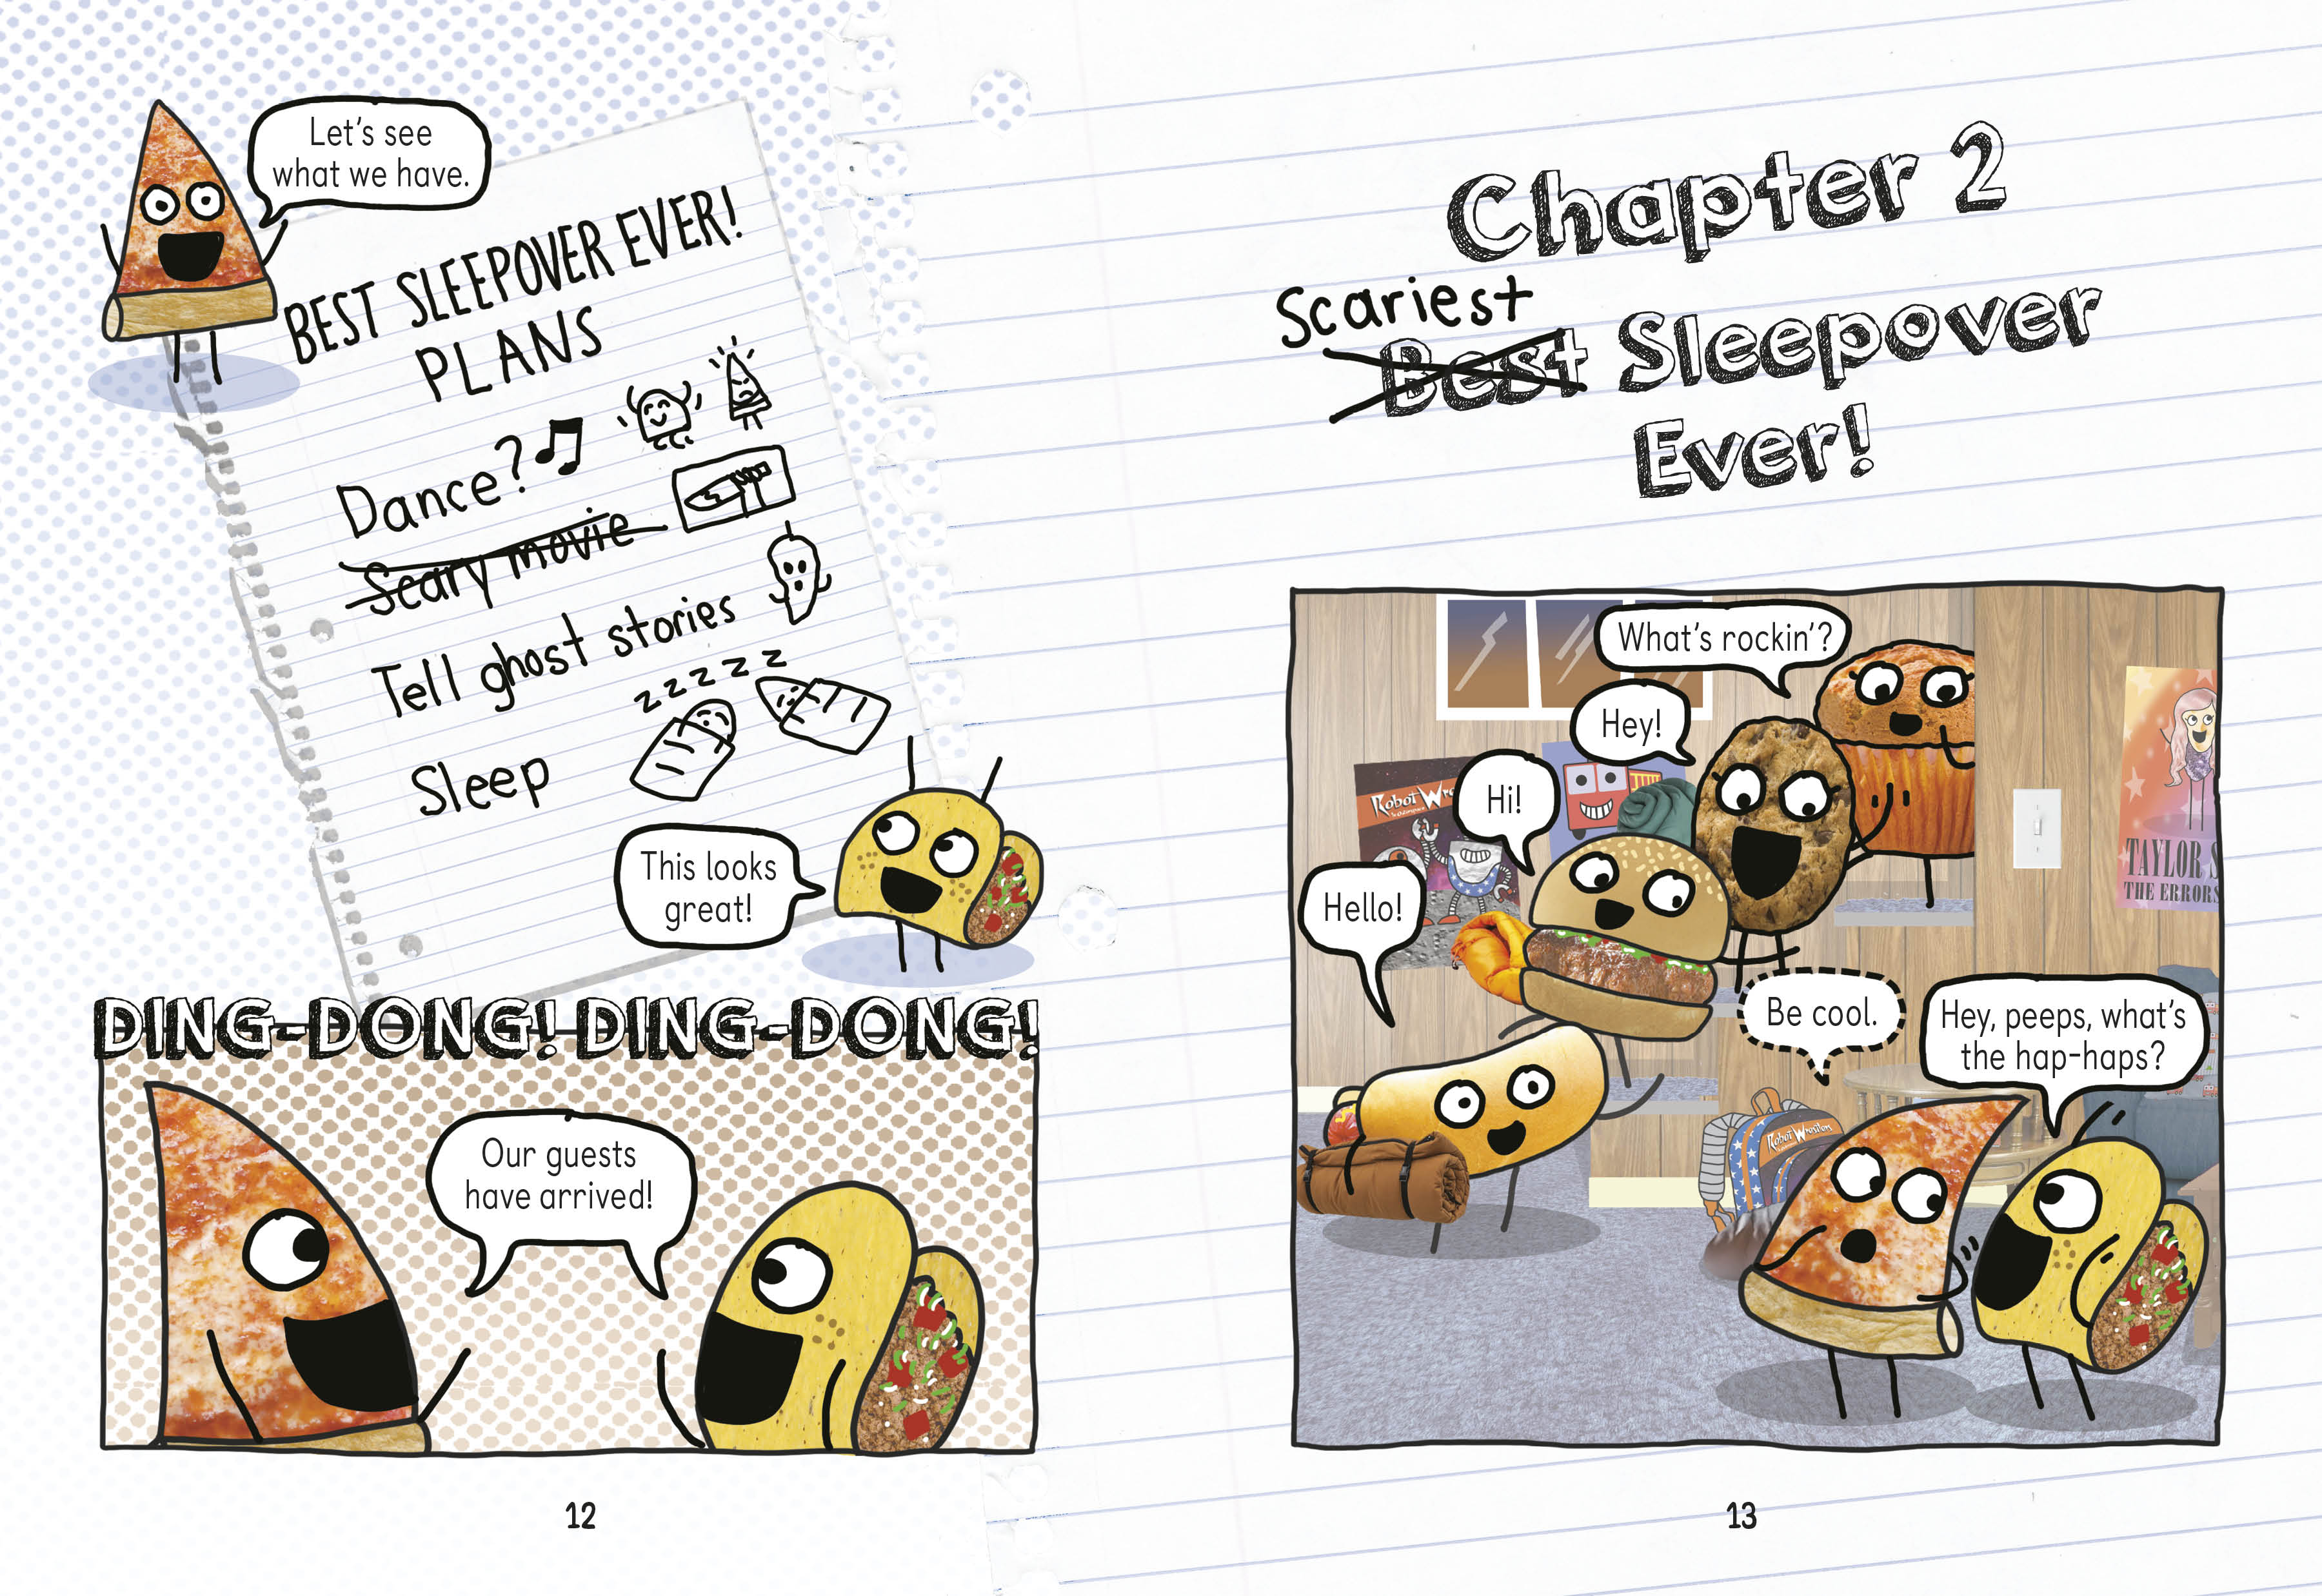 Let's see
what we have.
BEST SLEEPOVER EVER!
PLANS
Dance?
Scary movie
Tell ghost stories
zzzzz
Sleep
This looks
great!
DING-DONG! DING-DONG!
Our guests
have arrived!
12
Chapter 2
Scariest
Best Sleepover
Ever!
What's rockin'?
Hey!
Hi!
Hello!
Robot Wre
TAYLOR S
THE ERRORS
Be cool.
Hey, peeps, what's
the hap-haps?
Robot Wrestlers
13